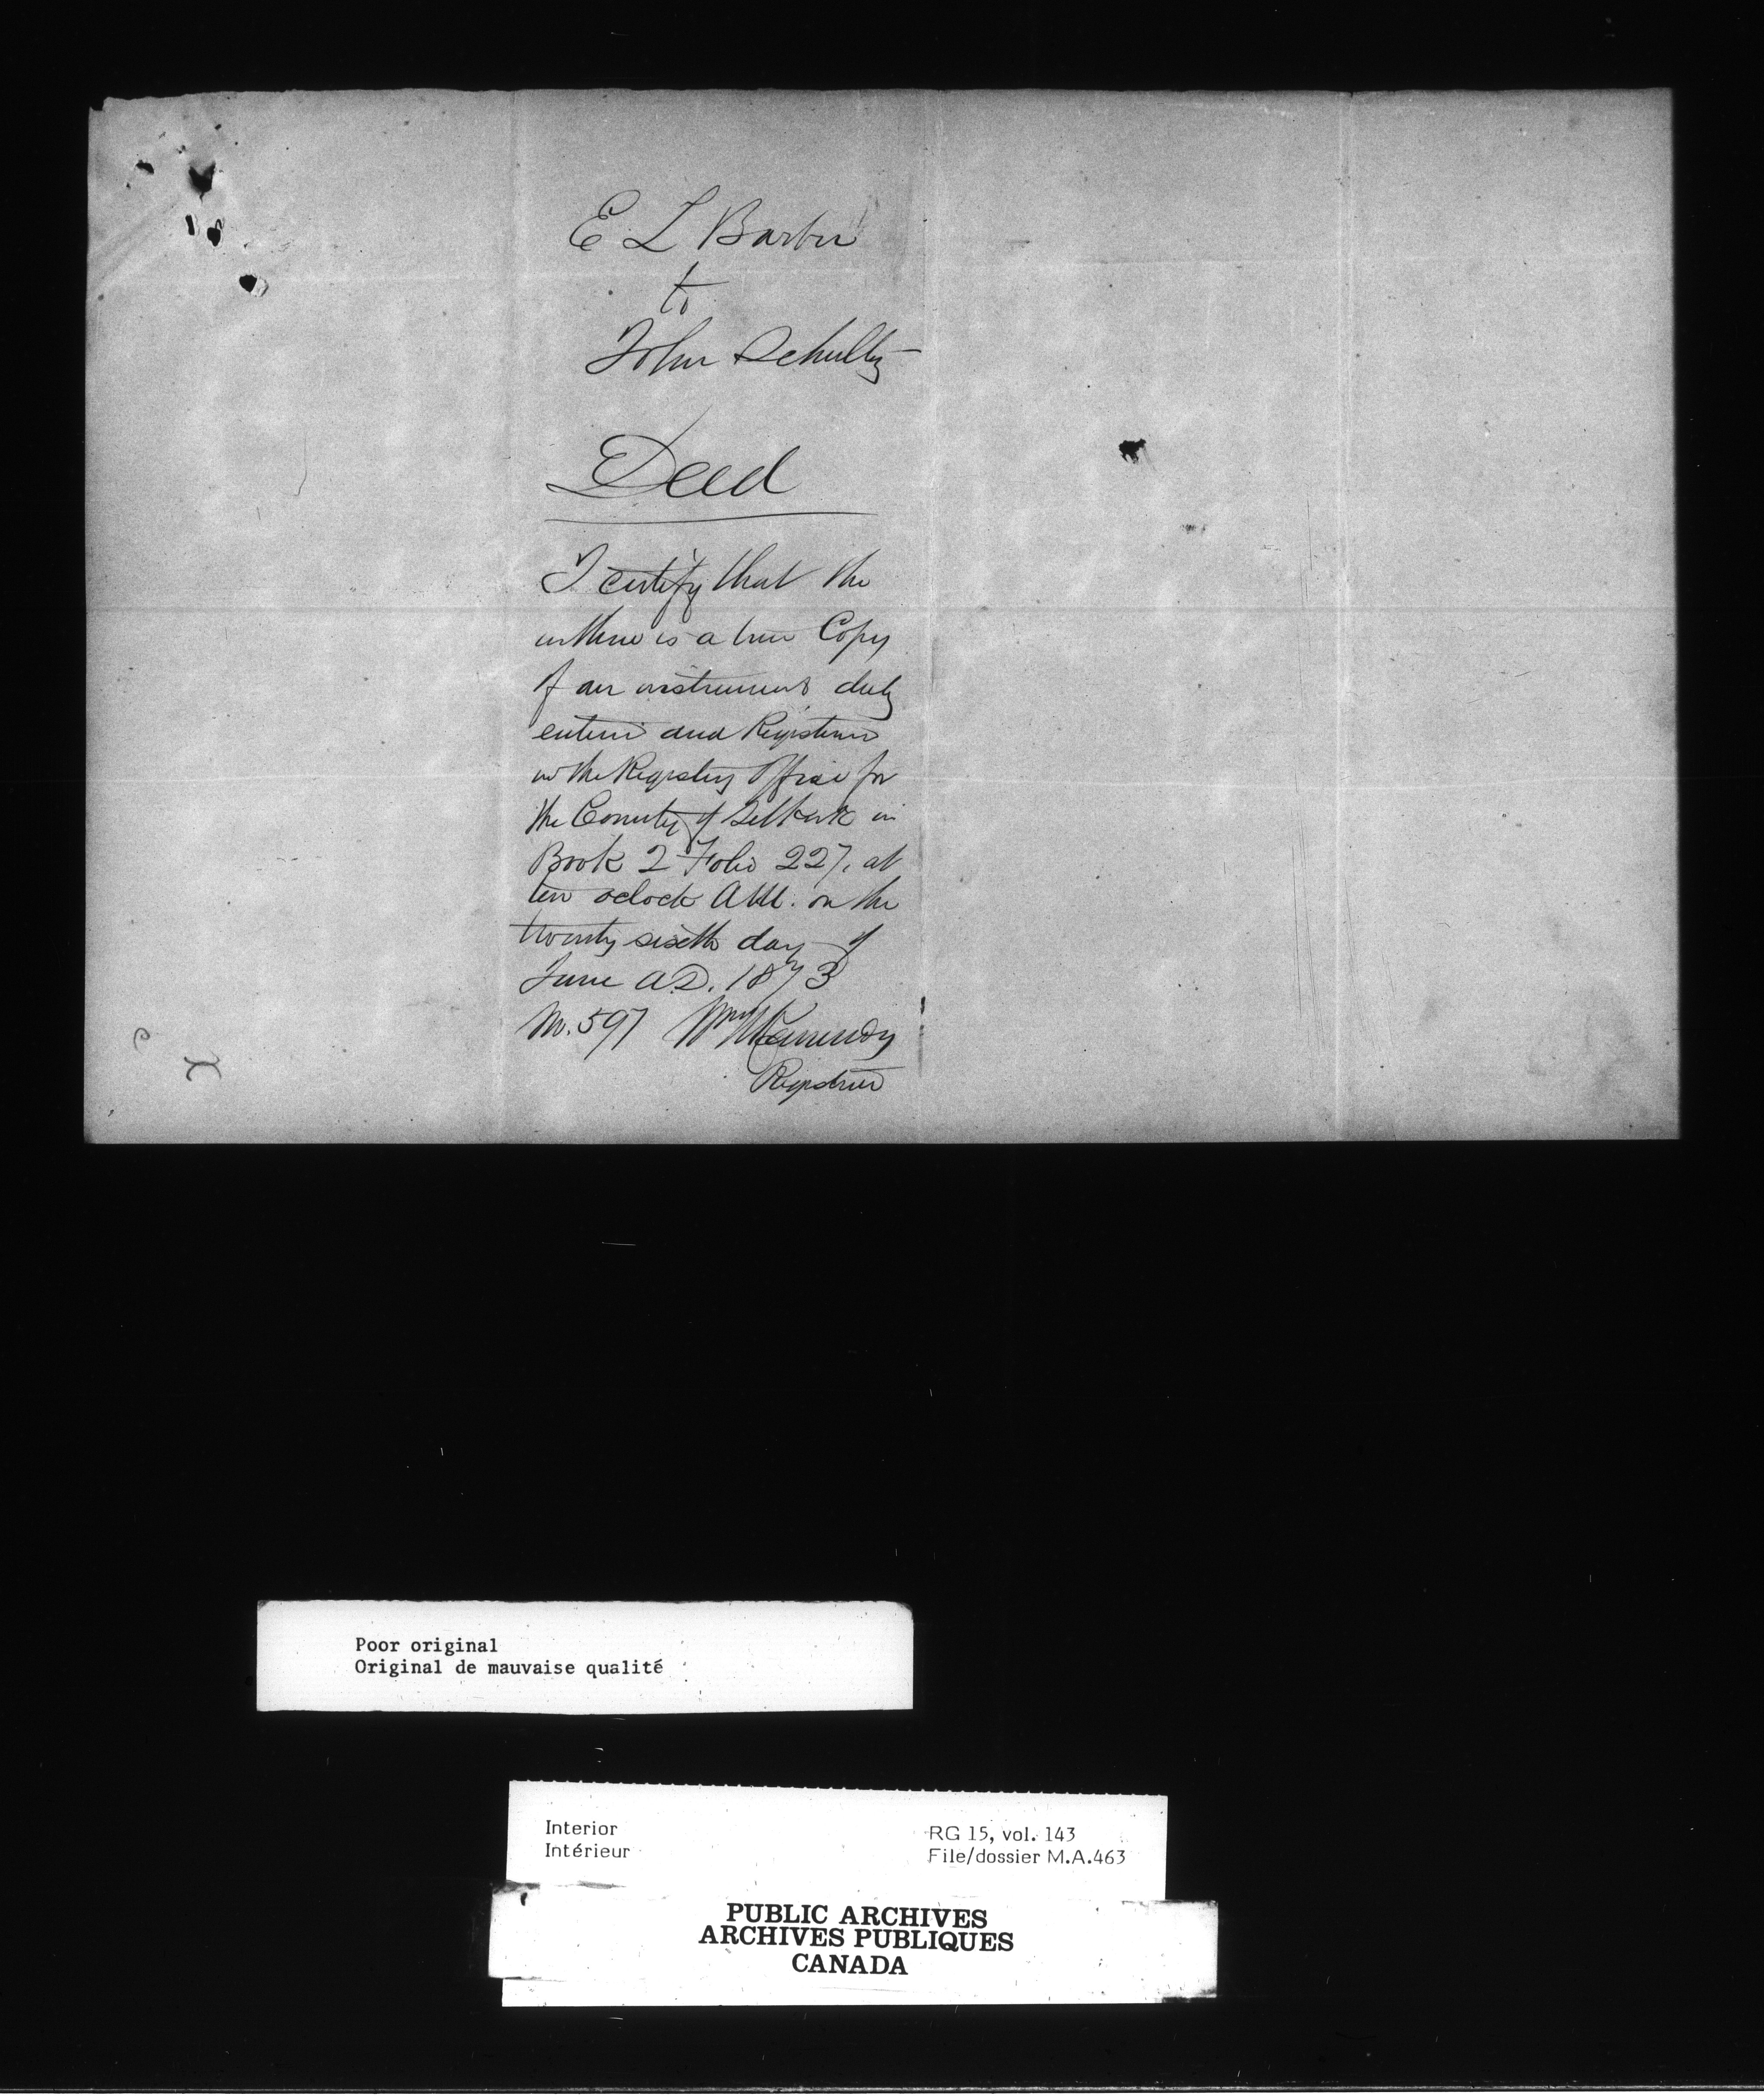 E L Barber
to
John Schultz
Deed
I certify that the
within is a true Copy
of an instrument duly
entered and Registered
in the Registry Office for
the County of Selkirk in
Book 2 Folio 227, at
ten oclock A.M. on the
twenty sixth day of
June A.D. 1873
No. 597 Wm Kennedy
Registrar
Poor original
Original de mauvaise qualité
Interior
Intérieur
RG 15, vol. 143
File/dossier M.A.463
PUBLIC ARCHIVES
ARCHIVES PUBLIQUES
CANADA